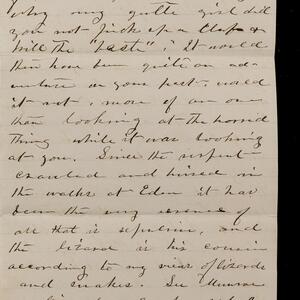 Why my gutle girl did
you not pick up a Club &
kill the "beast"; It would
then have been quite an ad-
venture on your part. would
it not, more of an one
than looking at the horrid
Thing while it was looking
at you. Since the serpent
crawled and hissed in
the walks at Eden it has
been the very essence of
all that is repulsive, and
the lizard is his cousin
according to my view of lizards
and snakes.